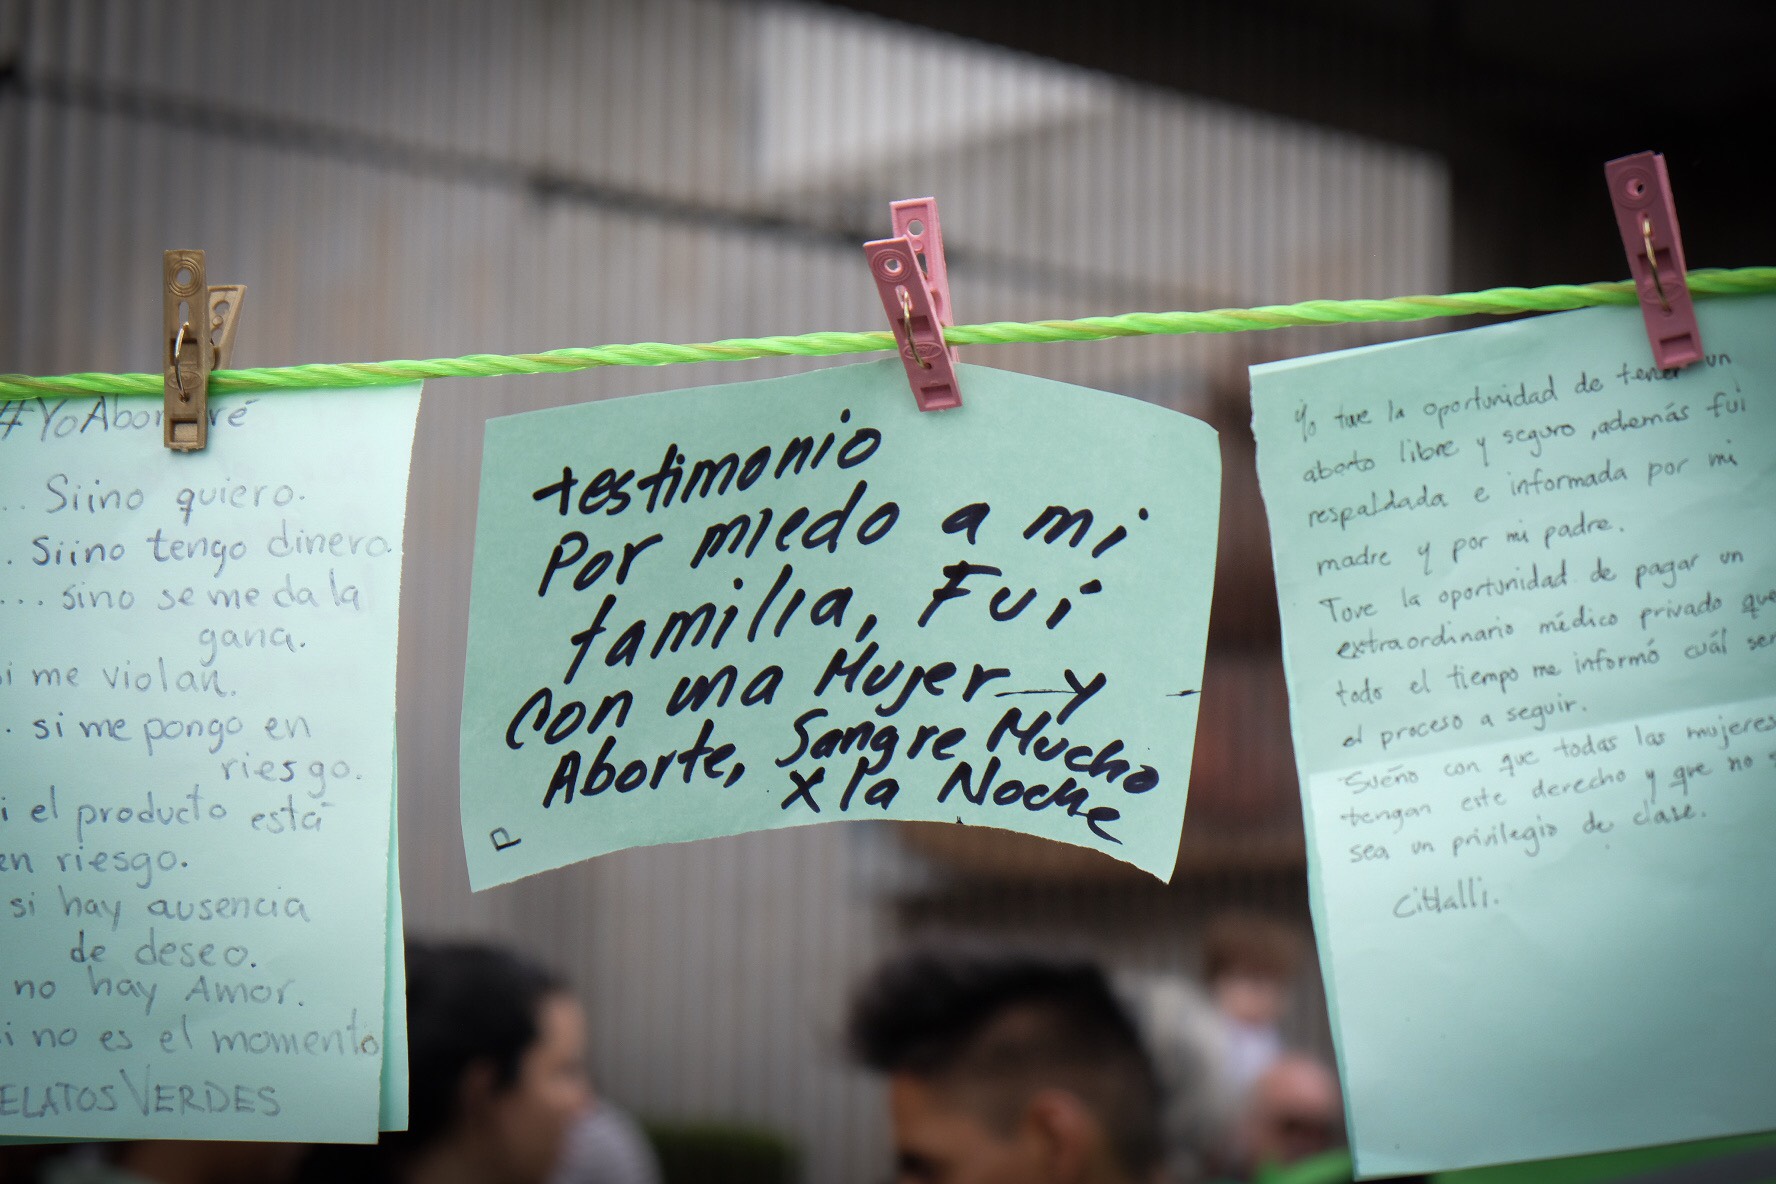 #YoAbortaré
... Siino quiero.
. Siino tengo dinero.
... sino se me da la
gana.
i me violan.
. si me pongo en
riesgo.
i el producto está
en riesgo.
si hay ausencia
de deseo.
no hay Amor.
i no es el momento
ELATOS VERDES
testimonio
Por miedo a mi
familia, Fui
con una Mujer y
Aborte, Sangre Mucho
x la Noche
P
Yo tuve la oportunidad de tener un
aborto libre y seguro, además fui
respaldada e informada por mi
madre y por mi padre.
Tove la oportunidad de pagar un
extraordinario médico privado que
todo el tiempo me informó cuál ser
el proceso a seguir.
Sueño con que todas las mujeres
tengan este derecho y que no s
sea un privilegio de clase.
Citlalli.